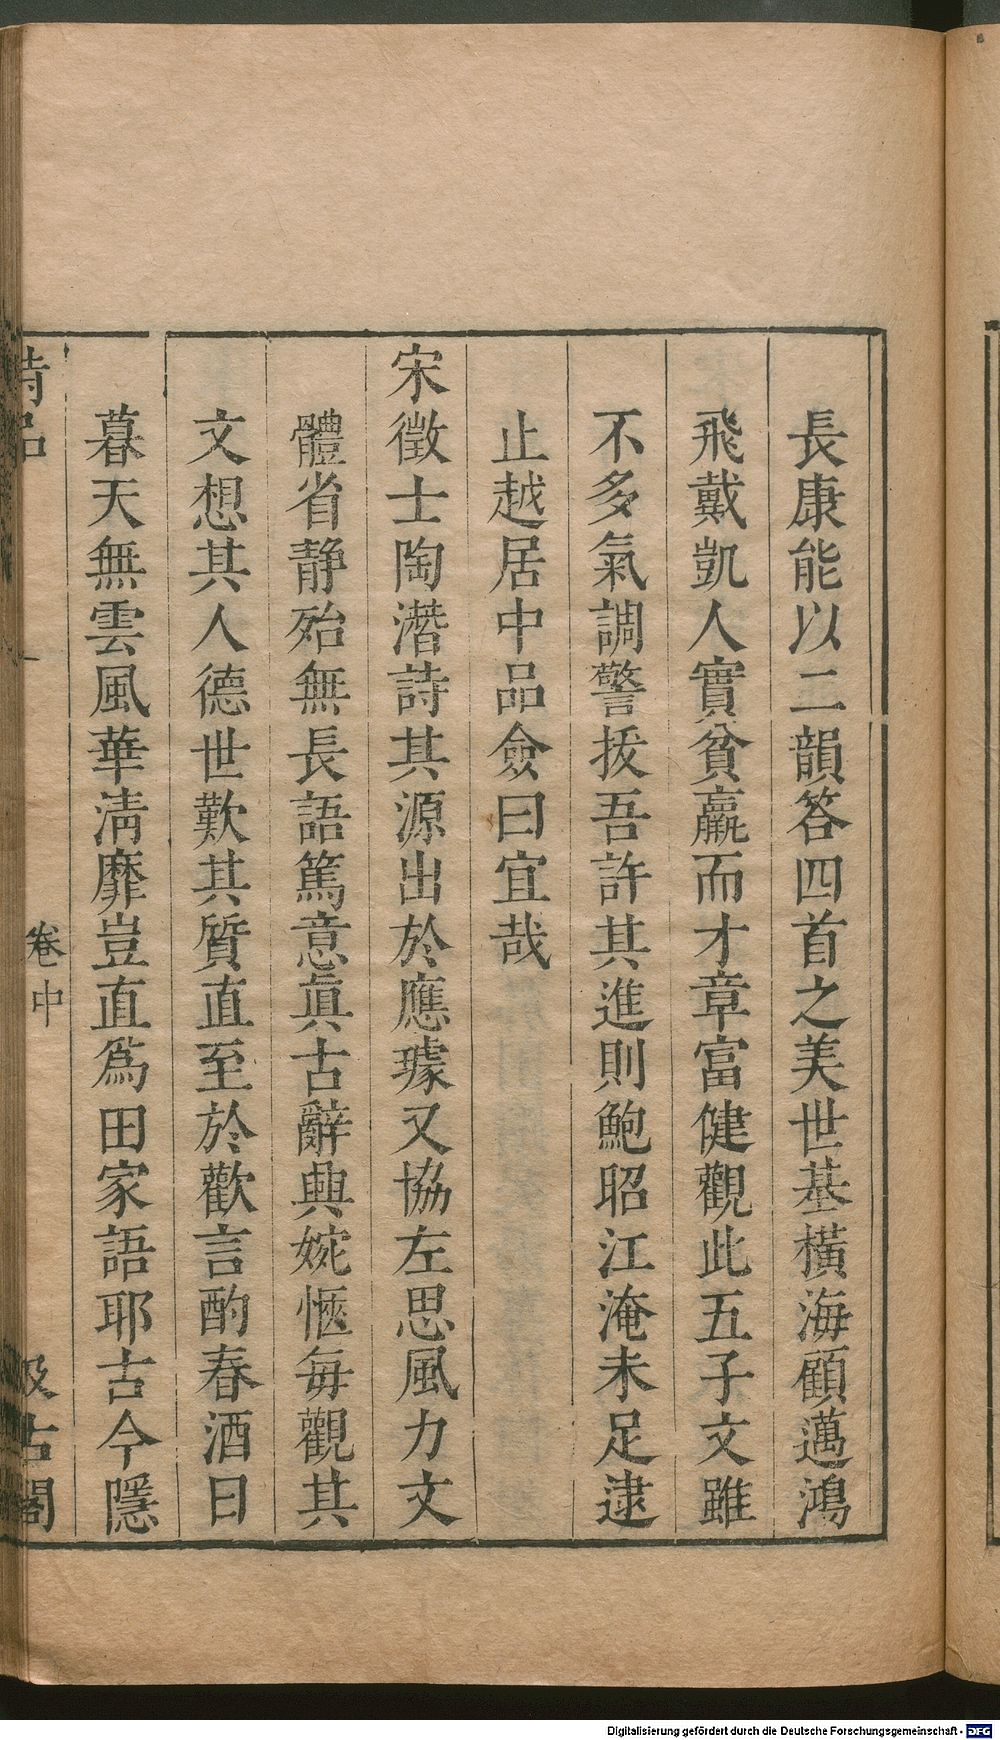 長康能以二韻答四首之美世基橫海顧邁鴻
飛戴凱人實貧羸而才章富健觀此五子文雖
不多氣調警拔吾許其進則鮑昭江淹未足逮
止越居中品僉曰宜哉
宋徵士陶潛詩其源出於應璩又協左思風力文
體省静殆無長語篤意眞古辭興婉愜每觀其
文想其人德世歎其質直至於歡言酌春酒日
暮天無雲風華淸靡豈直爲田家語耶古今隱
詩品
卷中
汲古閣
Digitalisierung gefördert durch die Deutsche Forschungsgemeinschaft - DFG